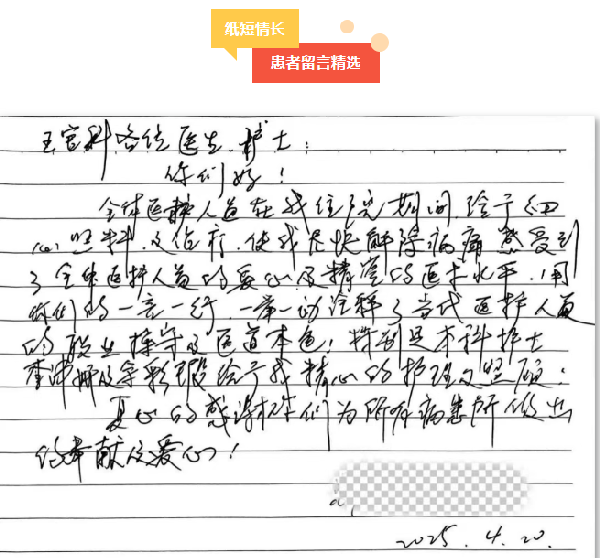 纸短情长
患者留言精选
五官科各位医生、护士
你们好！
全体医护人员在我住院期间，给予细
心照料及治疗，使我尽快解除病痛感受到
了全体医护人员的爱心及精湛的医术水平，用
你们的一言一行，一举一动诠释了当代医护人员
的职业操守及医道本色，特别是本科护士
给予我精心的护理及照顾：
衷心的感谢你们为所有病患所做出
的奉献及爱心！
2025.4.20.